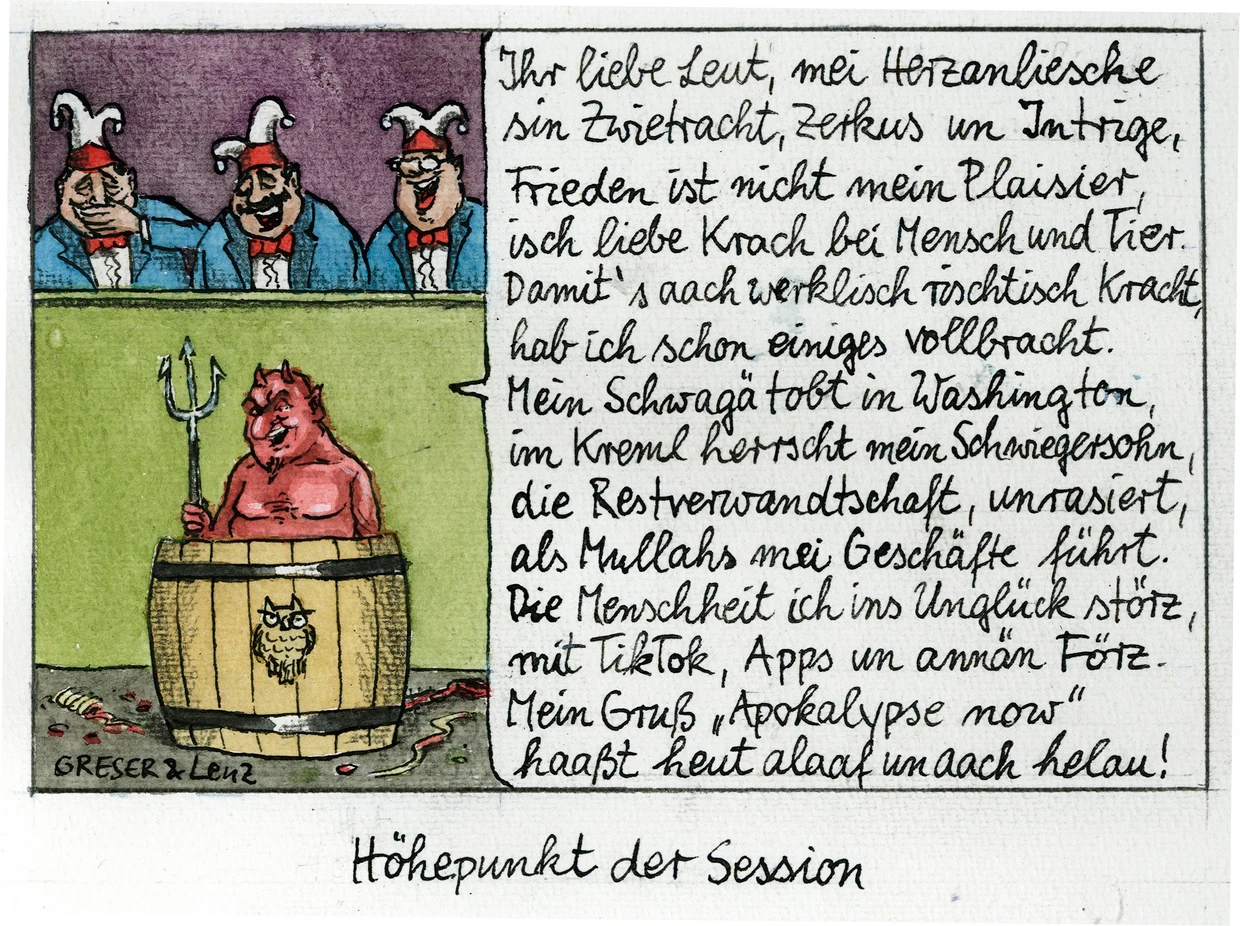 Ihr liebe Leut, mei Herzanliesche
sin Zwietracht, Zerkus un Intrige,
Frieden ist nicht mein Plaisier,
isch liebe Krach bei Mensch und Tier.
Damit's aach werklisch rischtisch Kracht,
hab ich schon einiges vollbracht.
Mein Schwagä tobt in Washington,
im Kreml herrscht mein Schwiegersohn,
die Restverwandtschaft, unrasiert,
als Mullahs mei Geschäfte führt.
Die Menschheit ich ins Unglück störz,
mit TikTok, Apps un annän Förz.
Mein Gruß „Apokalypse now“
haaßt heut alaaf un aach helau!
GRESER & Lenz
Höhepunkt der Session